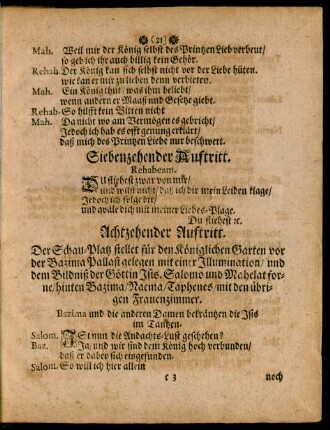 (21)
Mah. Weil mir der König selbst des Printzen Lieb verbeut/
so geb ich ihr auch billig kein Gehör.
Rehab. Der König kan sich selbst nicht vor der Liebe hüten.
wie kan er mir zu lieben denn verbieten.
Mah. Ein König thut was ihm beliebt/
wenn andern er Maaß und Gesetze giebt.
Rehab. So hilfft kein Bitten nicht
Mah. Da nicht wo am Vermögen es gebricht/
Jedoch ich hab es offt genung erklärt/
daß mich des Printzen Liebe nur beschwert.
Siebenzehender Auftritt.
Rehabeam.
DU fliehest zwar von mir/
und wilst nicht/ daß ich dir mein Leiden klage/
Jedoch ich folge dir/
und qväle dich mit meiner Liebes-Plage.
Du fliehest ꝛc.
Achtzehender Auftritt.
Der Schau-Platz stellet für den Königlichen Garten vor
der Bazima Pallast gelegen mit einer Illumination/ und
dem Bildniß der Göttin Isis. Salomo und Mahelat for-
ne/ hinten Bazima/ Naema/ Taphenes/ mit den übri-
gen Frauenzimmer.
Bazima und die anderen Damen bekräntzen die Isis
im Tantzen.
Salom. ISt nun die Andachts-Lust geschehen?
Baz. Ja/ und wir sind dem König hoch verbunden/
daß er dabey sich eingefunden.
Salom. So will ich hier allein
c 3 noch